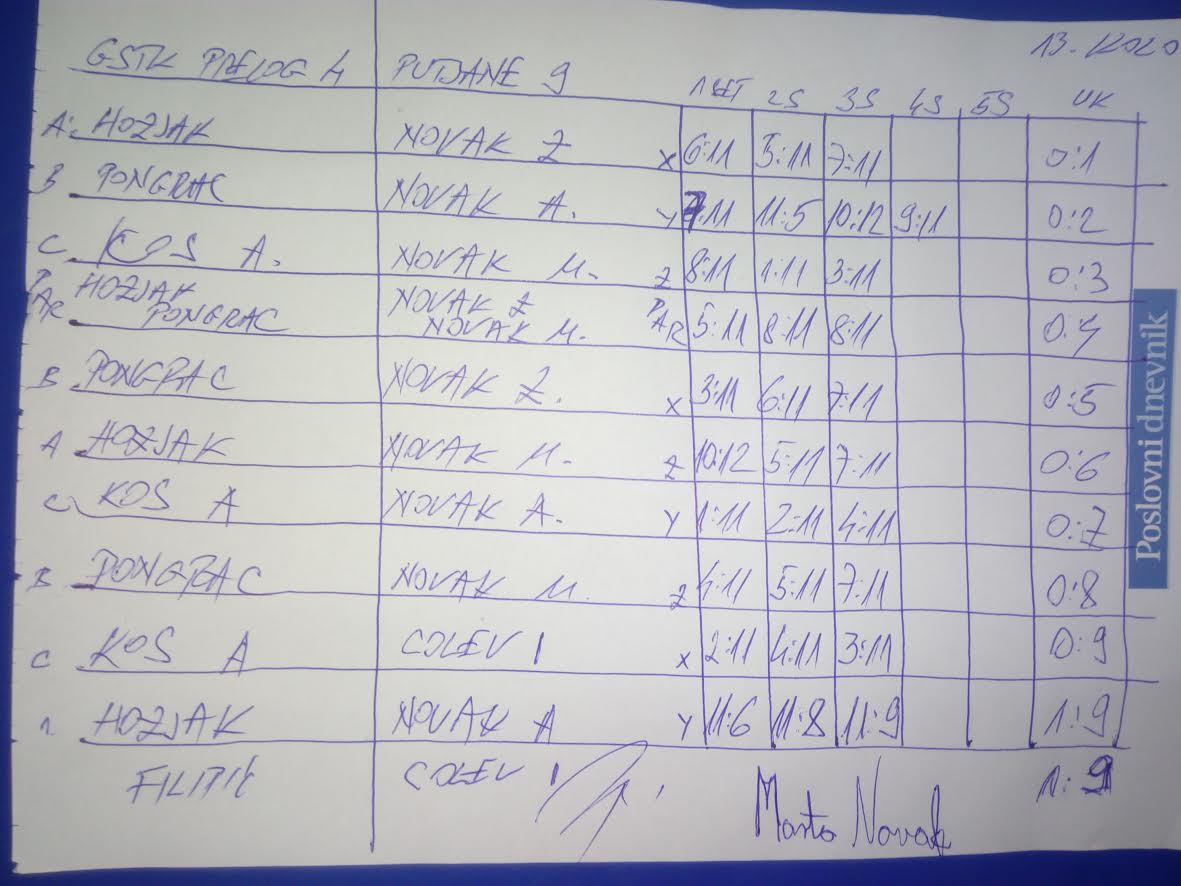 13. KOLO
GSTK PRELOG 4 PUTJANE 9 1 SET 2S 3S 4S 5S UK
A: HOZJAK NOVAK Z X 6:11 5:11 7:11 0:1
B PONGRAC NOVAK A. Y 7:11 11:5 10:12 9:11 0:2
C KOS A. NOVAK M. Z 8:11 1:11 3:11 0:3
PAR HOZJAK NOVAK Z PAR 5:11 8:11 8:11 0:4
PONGRAC NOVAK M.
B PONGRAC NOVAK Z. X 3:11 6:11 7:11 0:5
A HOZJAK NOVAK M. Z 10:12 5:11 7:11 0:6
C KOS A NOVAK A. Y 1:11 2:11 4:11 0:7
B PONGRAC NOVAK M. Z 4:11 5:11 7:11 0:8
C KOS A COLEV I X 2:11 4:11 3:11 0:9
HOZJAK NOVAK A Y 11:6 11:8 11:9 1:9
FILIPIĆ COLEV I 1:9
Marta Novak
Poslovni dnevnik